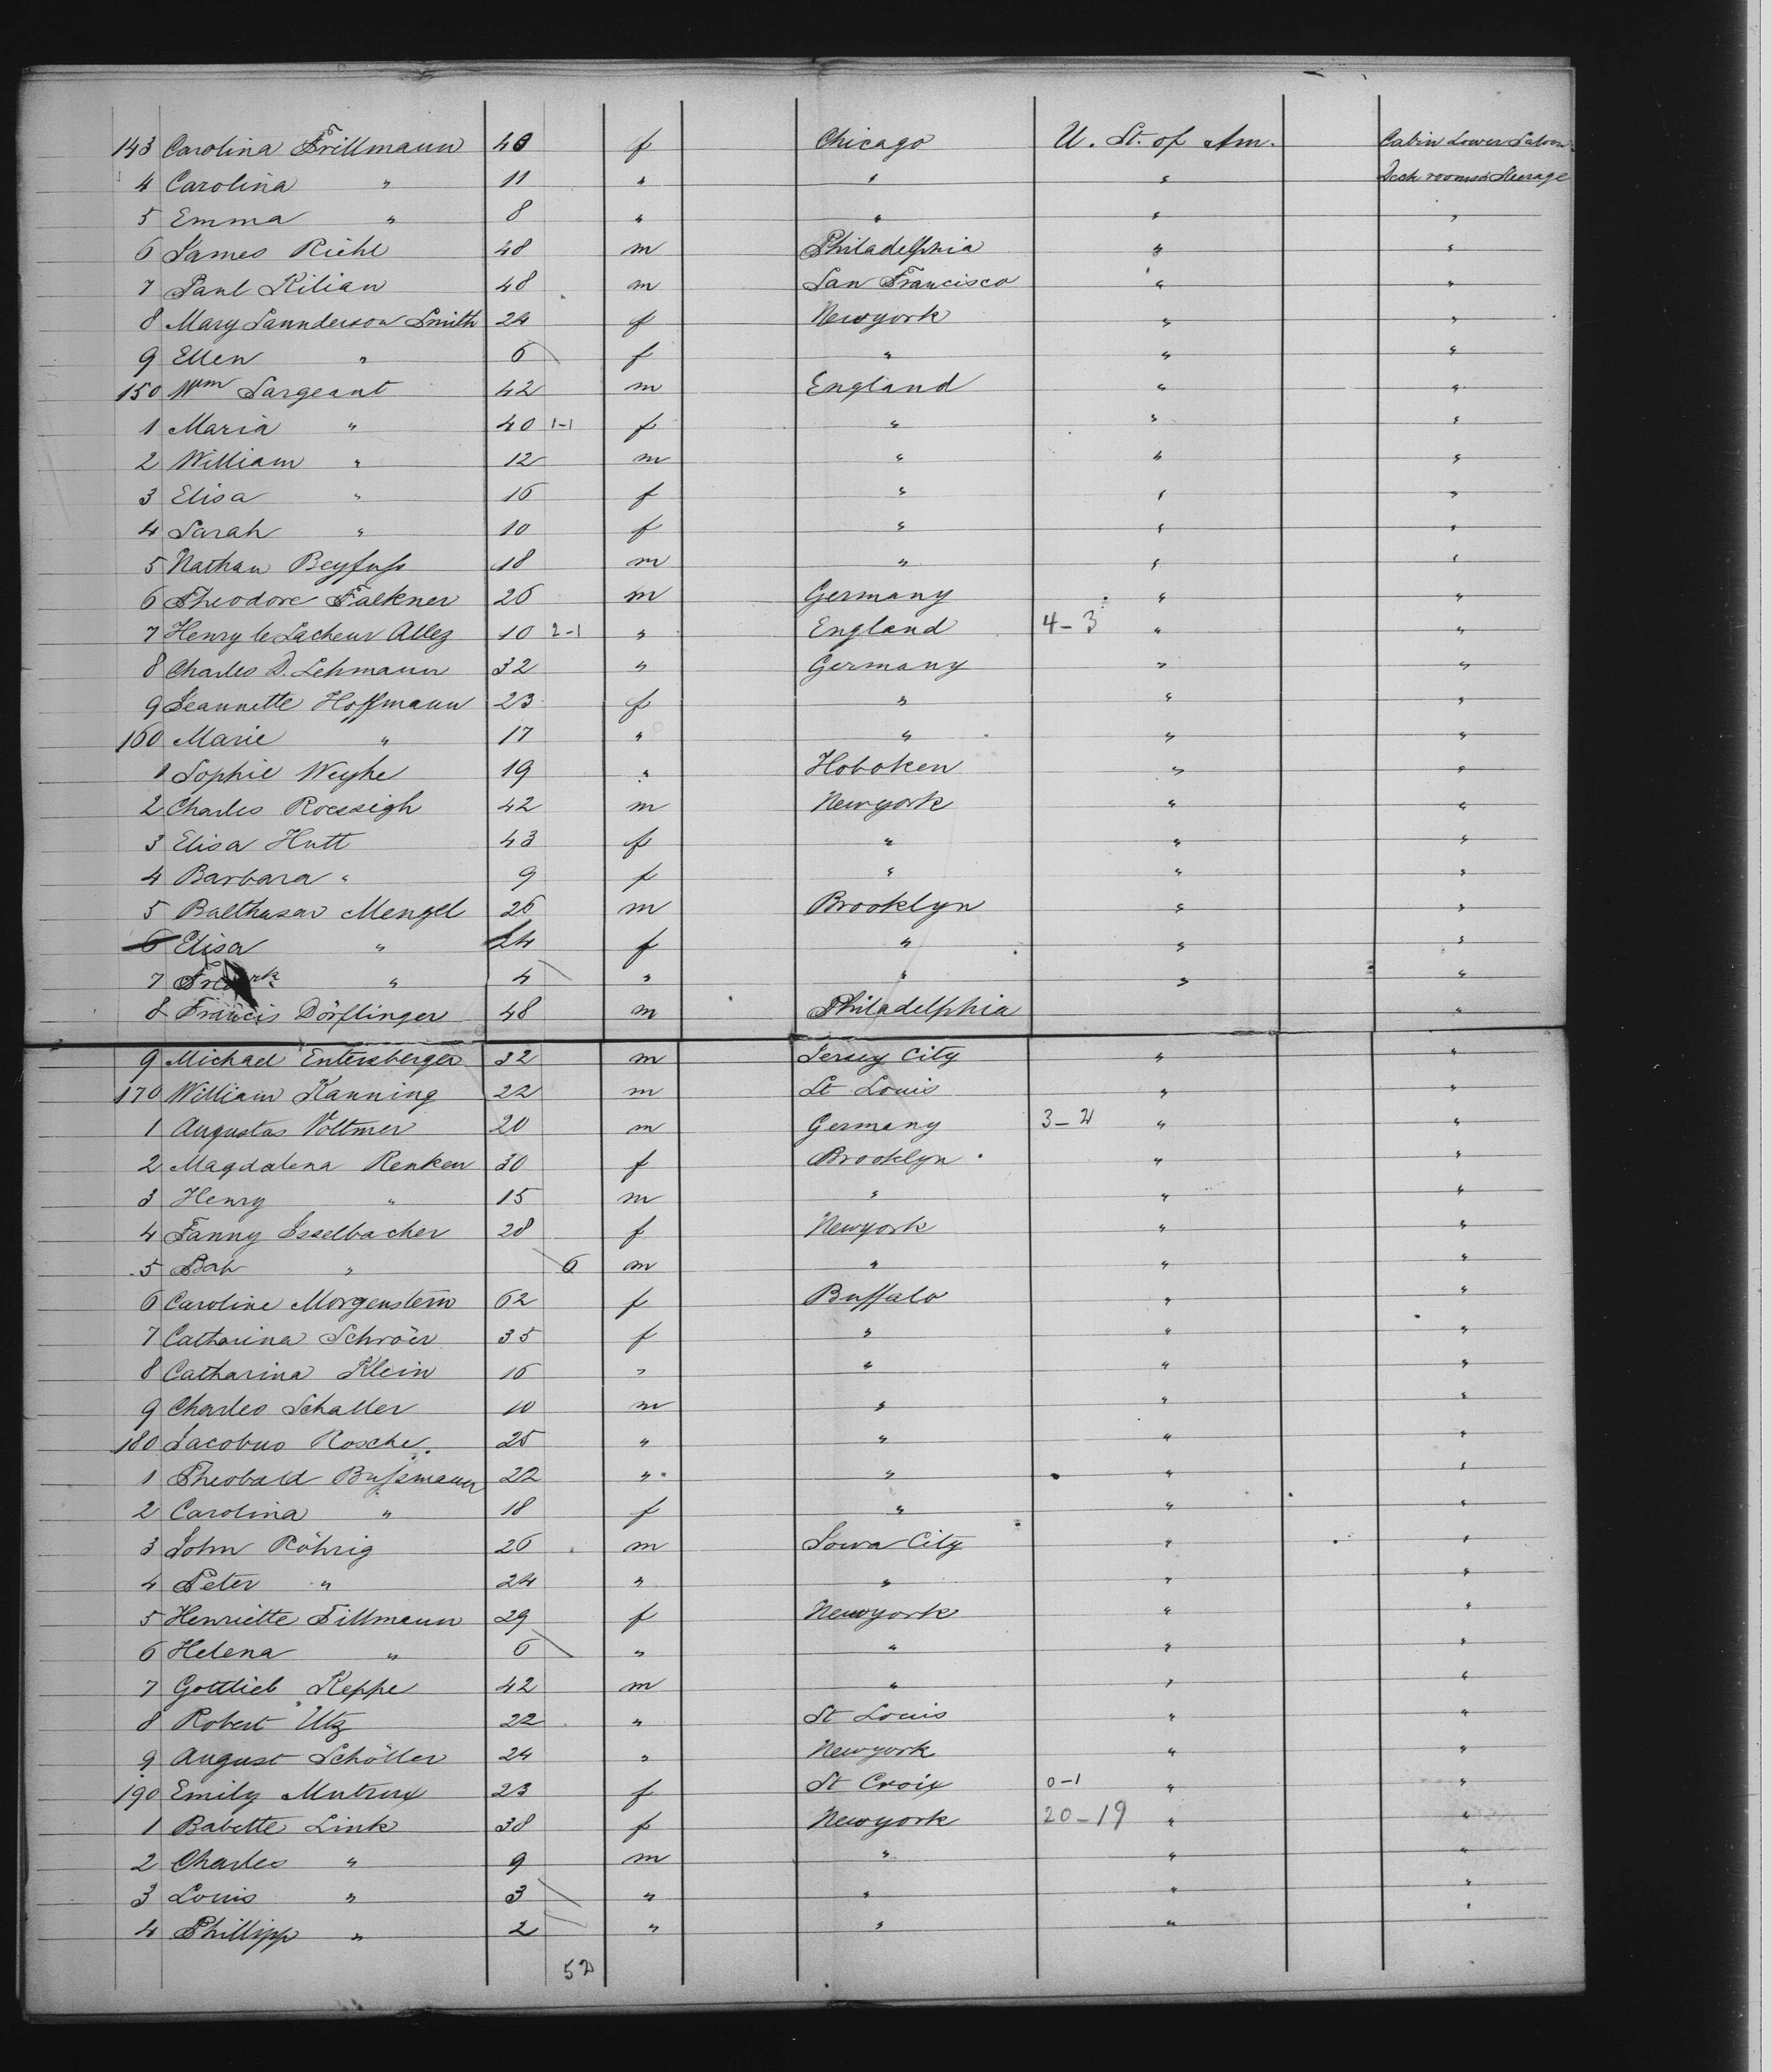 143 Carolina Trillmann 40 f Chicago U. St. of Am. Cabin Lower Saloon
4 Carolina " 11 " " " Deck rooms & Steerage
5 Emma " 8 " " " "
6 James Riehl 48 m Philadelphia " "
7 Paul Kilian 48 m San Francisco " "
8 Mary Saunderson Smith 24 f Newyork " "
9 Ellen " 6 f " " "
150 Wm Sargeant 42 m England " "
1 Maria " 40 1-1 f " " "
2 William " 12 m " " "
3 Elisa " 16 f " " "
4 Sarah " 10 f " " "
5 Nathan Beyfuss 18 m " " "
6 Theodore Falkner 26 m Germany " "
7 Henry le Lacheur Allez 10 2-1 " England 4-3 " "
8 Charles D. Lehmann 32 " Germany " "
9 Jeannette Hoffmann 23 f " " "
160 Marie " 17 " " " "
1 Sophie Weyhe 19 " Hoboken " "
2 Charles Roessigh 42 m Newyork " "
3 Elisa Hutt 43 f " " "
4 Barbara " 9 f " " "
5 Balthasar Mengel 26 m Brooklyn " "
6 Elisa " 24 f " " "
7 Fredrk " 4 " " " "
8 Francis Dörflinger 48 m Philadelphia "
9 Michael Entersberger 32 m Jersey City " "
170 William Kanning 22 m St Louis " "
1 Augustas Voltmer 20 m Germany 3-2 " "
2 Magdalena Renken 30 f Brooklyn " "
3 Henry " 15 m " " "
4 Fanny Isselbacher 28 f Newyork " "
5 " 6 m " " "
6 Caroline Morgenstern 62 f Buffalo " "
7 Catharina Schröer 35 f " " "
8 Catharina Klein 16 " " " "
9 Charles Schaller 10 m " " "
180 Jacobus Rosche. 25 " " " "
1 Theobald Bussmann 22 " " " "
2 Carolina " 18 f " " "
3 John Röhrig 26 m Iowa City " "
4 Peter " 24 " " " "
5 Henriette Tillmann 29 f Newyork " "
6 Helena " 6 " " " "
7 Gottlieb Keppe 42 m " " "
8 Robert Utz 22 " St Louis " "
9 August Schöller 24 " Newyork " "
190 Emily Mutrux 23 f St Croix 0-1 " "
1 Babette Link 38 f Newyork 20-19 " "
2 Charles " 9 m " " "
3 Louis " 3 " " " "
4 Phillipp " 2 " " " "
52